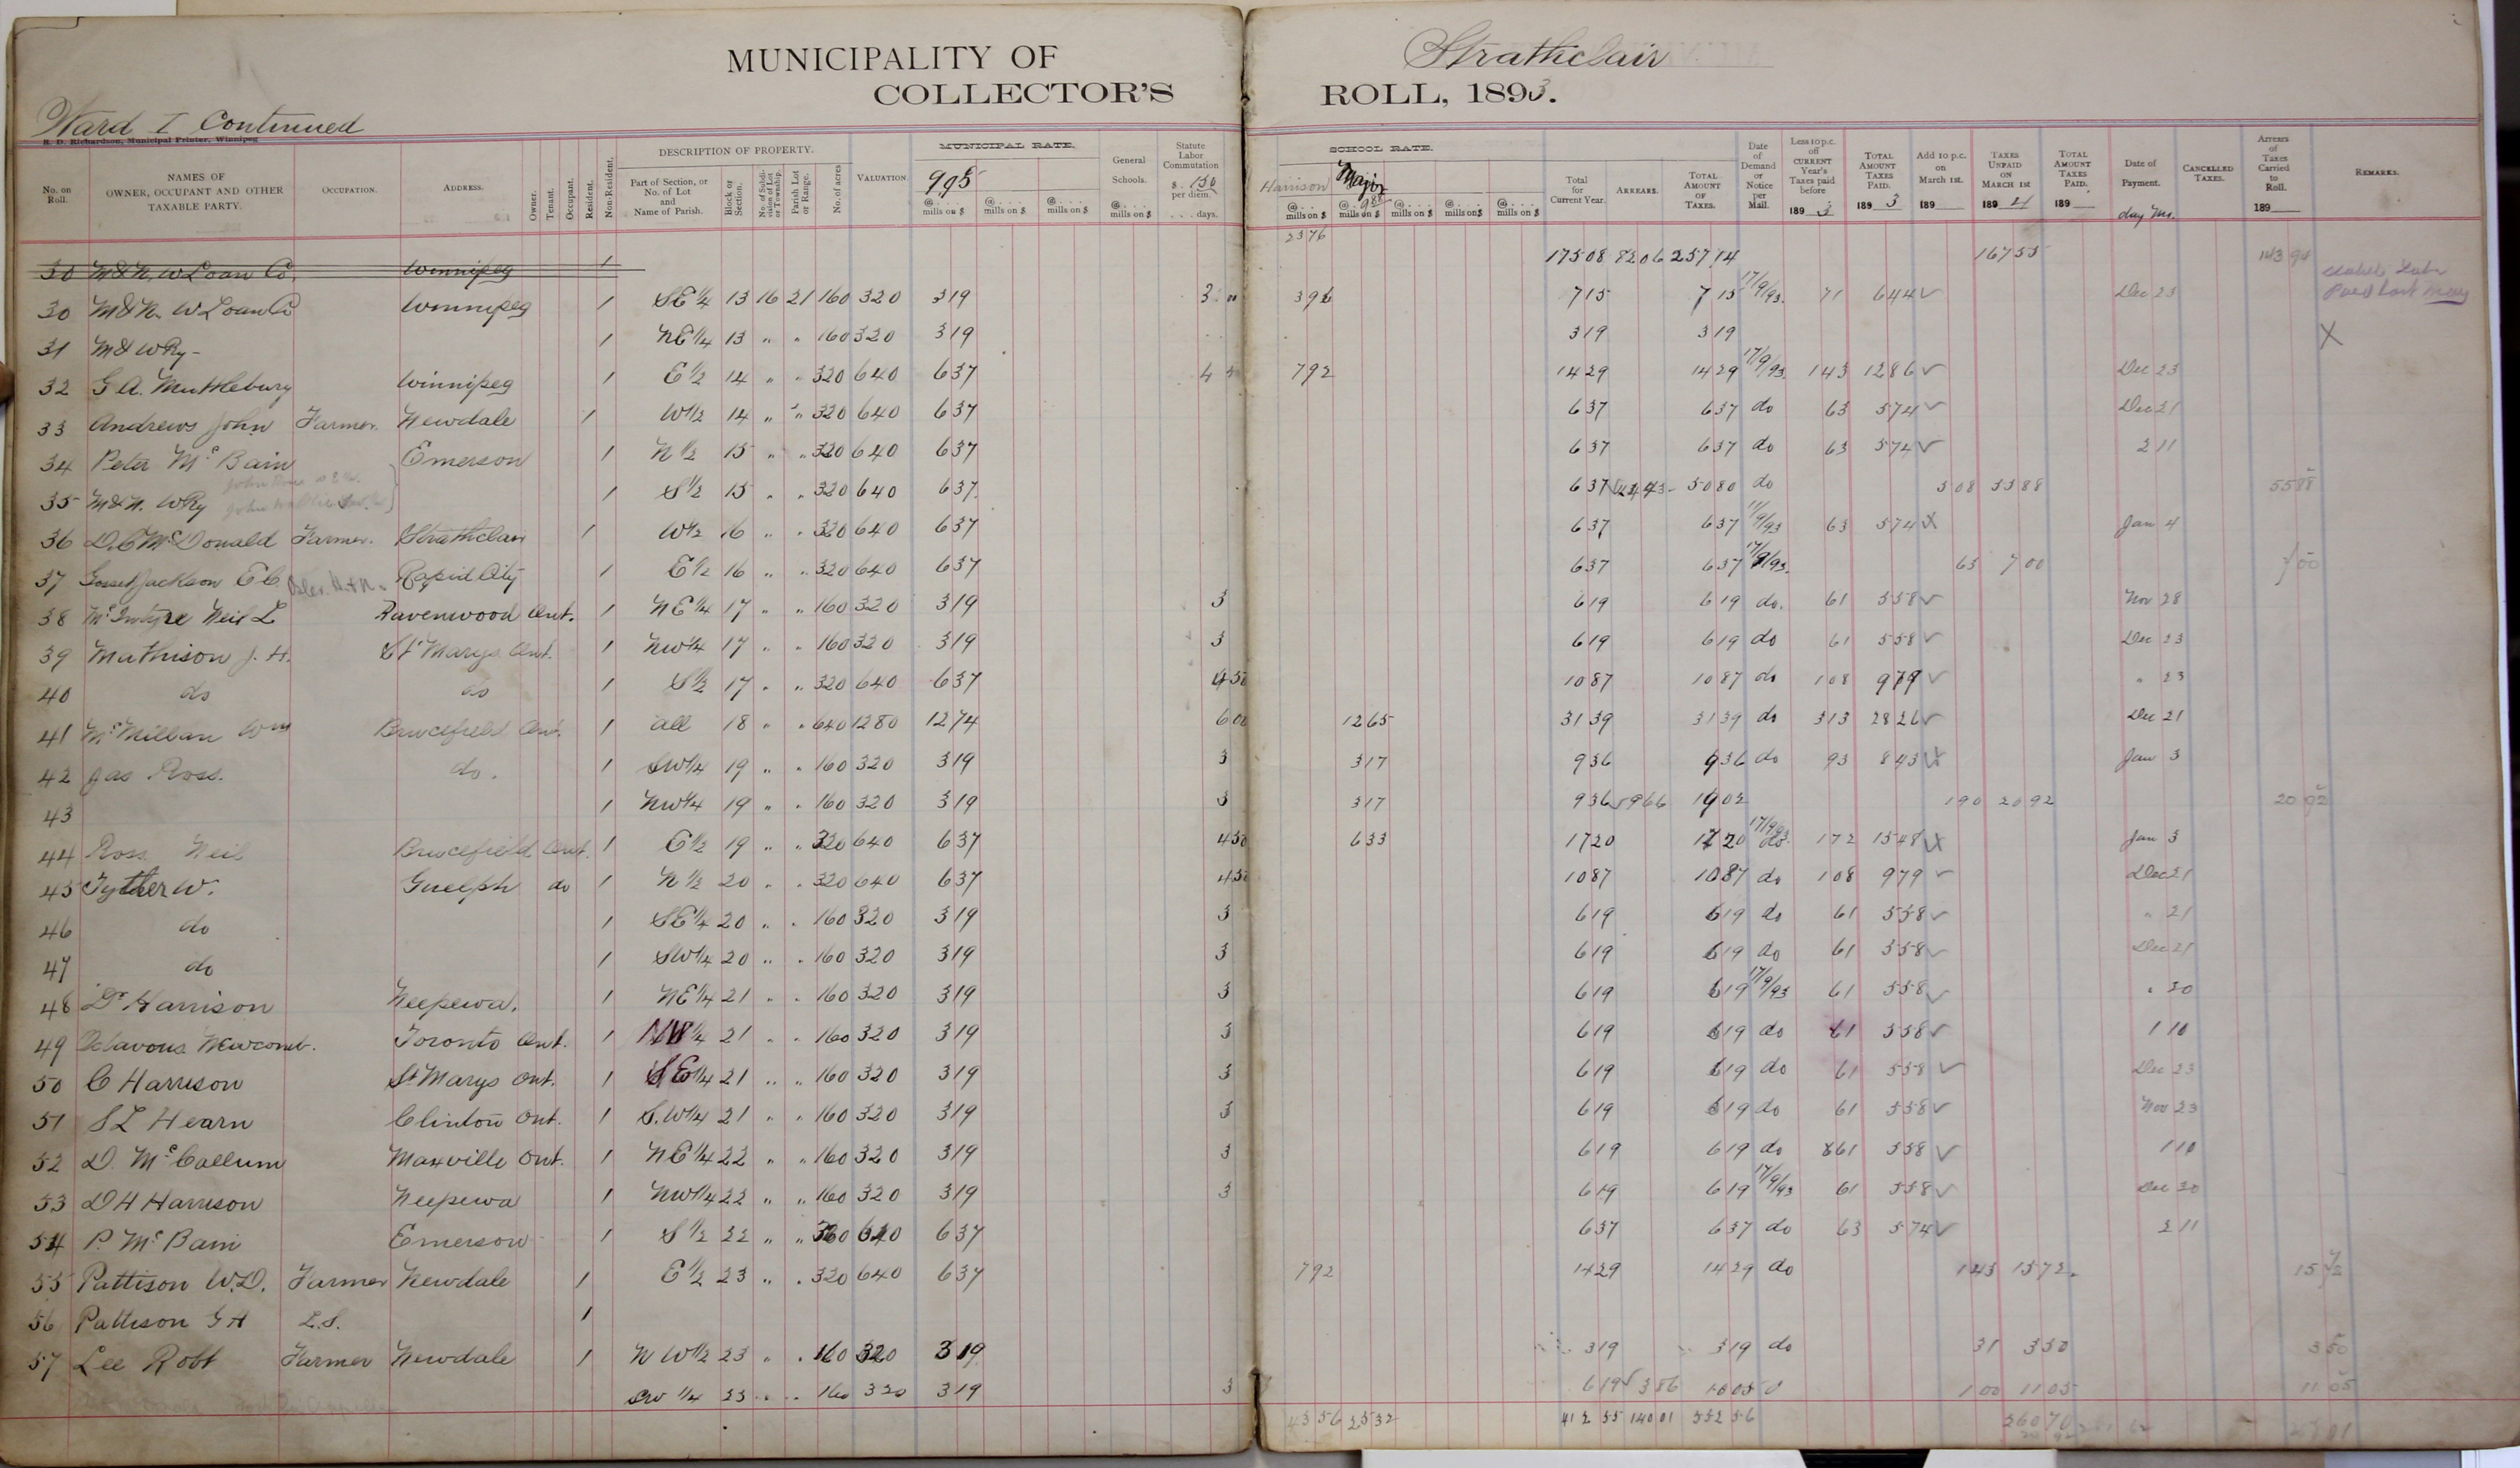 MUNICIPALITY OF Strathclair
COLLECTOR'S ROLL, 1893.
Ward I Continued
R. D. Richardson, Municipal Printer, Winnipeg
No. on Roll. NAMES OF OWNER, OCCUPANT AND OTHER TAXABLE PARTY. OCCUPATION. ADDRESS. Owner. Tenant. Occupant. Resident. Non-Resident. DESCRIPTION OF PROPERTY. Part of Section, or No. of Lot and Name of Parish. Block or Section. No. of Subdivision of Lot or Township. Parish Lot or Range. No. of acres VALUATION. MUNICIPAL RATE. 995 @ mills on $ @ mills on $ @ mills on $ General Schools. @ mills on $ Statute Labor Commutation $ 150 per diem. days. SCHOOL RATE. Harrison Major 988 @ mills on $ @ mills on $ @ mills on $ @ mills on $ @ mills on $ Total for Current Year. ARREARS. TOTAL AMOUNT OF TAXES. Date of Demand or Notice per Mail. Less 10 p.c. off CURRENT Year's Taxes paid before 1893 TOTAL AMOUNT TAXES PAID. 1893 Add 10 p.c. on March 1st. 189 TAXES UNPAID ON MARCH 1st 1894 TOTAL AMOUNT TAXES PAID. 189 Date of Payment. day Mo. CANCELLED TAXES. Arrears of Taxes Carried to Roll. 189 REMARKS.
2376
30 M & N. W Loan Co. Winnipeg 1 175 08 82 06 257 14 167 55 143 94
30 M & N. W Loan Co Winnipeg 1 SE 1/4 13 16 21 160 320 319 3 00 396 715 715 17/9/93. 71 644 ✓ Dec 23 Paid Last May
31 M & W Ry - 1 NE 1/4 13 " " 160 320 319 319 319 X
32 G A. Muttlebury Winnipeg 1 E 1/2 14 " " 320 640 637 792 1429 1429 17/9/93. 143 1286 ✓ Dec 23
33 Andrews John Farmer. Newdale 1 W 1/2 14 " " 320 640 637 637 637 do 63 574 ✓ Dec 21
34 Peter Mc Bain Emerson 1 N 1/2 15 " " 320 640 637 637 637 do 63 574 ✓ 2 11
35 M & N. W Ry 1 S 1/2 15 " " 320 640 637 637 4443 5080 do 508 5588 5588
36 D. C McDonald Farmer. Strathclair 1 W 1/2 16 " " 320 640 637 637 637 11/9/93 63 574 X Jan 4
37 Gosset Jackson E C Rapid City 1 E 1/2 16 " " 320 640 637 637 637 17/9/93. 63 700 7 00
38 McIntyre Neil L Ravenwood Ont. 1 NE 1/4 17 " " 160 320 319 3 619 619 do. 61 558 ✓ Nov 28
39 Mathison J. H. St Marys Ont. 1 NW 1/4 17 " " 160 320 319 3 619 619 do 61 558 ✓ Dec 23
40 do do 1 S 1/2 17 " " 320 640 637 450 1087 1087 do 108 979 ✓ " 23
41 McMillan Wm Brucefield Ont. 1 all 18 " " 640 1280 1274 600 1265 3139 3139 do 313 2826 ✓ Dec 21
42 Jas Ross. do. 1 SW 1/4 19 " " 160 320 319 3 317 936 936 do 93 843 X Jan 3
43 1 NW 1/4 19 " " 160 320 319 3 317 936 966 1902 190 2092 20 92
44 Ross Neil Brucefield Ont. 1 E 1/2 19 " " 320 640 637 450 633 1720 1720 17/9/93 do. 172 1548 X Jan 3
45 Tyther W. Guelph do 1 N 1/2 20 " " 320 640 637 450 1087 1087 do 108 979 ✓ Dec 21
46 do 1 SE 1/4 20 " " 160 320 319 3 619 619 do 61 558 ✓ " 21
47 do 1 SW 1/4 20 " " 160 320 319 3 619 619 do 61 558 ✓ Dec 21
48 Dr Harrison Neepewa. 1 NE 1/4 21 " " 160 320 319 3 619 619 17/9/93 61 558 ✓ " 20
49 Octavous Newcomb. Toronto Ont. 1 NW 1/4 21 " " 160 320 319 3 619 619 do 61 558 ✓ 1 10
50 C Harrison St Marys Ont. 1 SE 1/4 21 " " 160 320 319 3 619 619 do 61 558 ✓ Dec 23
51 S L Hearn Clinton Ont. 1 S.W 1/4 21 " " 160 320 319 3 619 619 do 61 558 ✓ Nov 23
52 D. McCallum Maxville Ont. 1 NE 1/4 22 " " 160 320 319 3 619 619 do 61 558 ✓ 1 10
53 D H Harrison Neepewa 1 NW 1/4 22 " " 160 320 319 3 619 619 17/9/93 61 558 ✓ Dec 20
54 P. Mc Bain Emerson 1 S 1/2 22 " " 320 640 637 637 637 do 63 574 ✓ 2 11
55 Pattison W.D. Farmer Newdale 1 E 1/2 23 " " 320 640 637 792 1429 1429 do 143 1572. 15 72
56 Pattison G H L.S. 1
57 Lee Robt Farmer Newdale 1 N W 1/2 23 " " 160 320 319 319 319 do 31 350 3 50
SW 1/4 23 " " 160 320 319 3 619 386 1005 100 1105 11 05
43 56 25 32 412 55 140 01 552 56 260 70